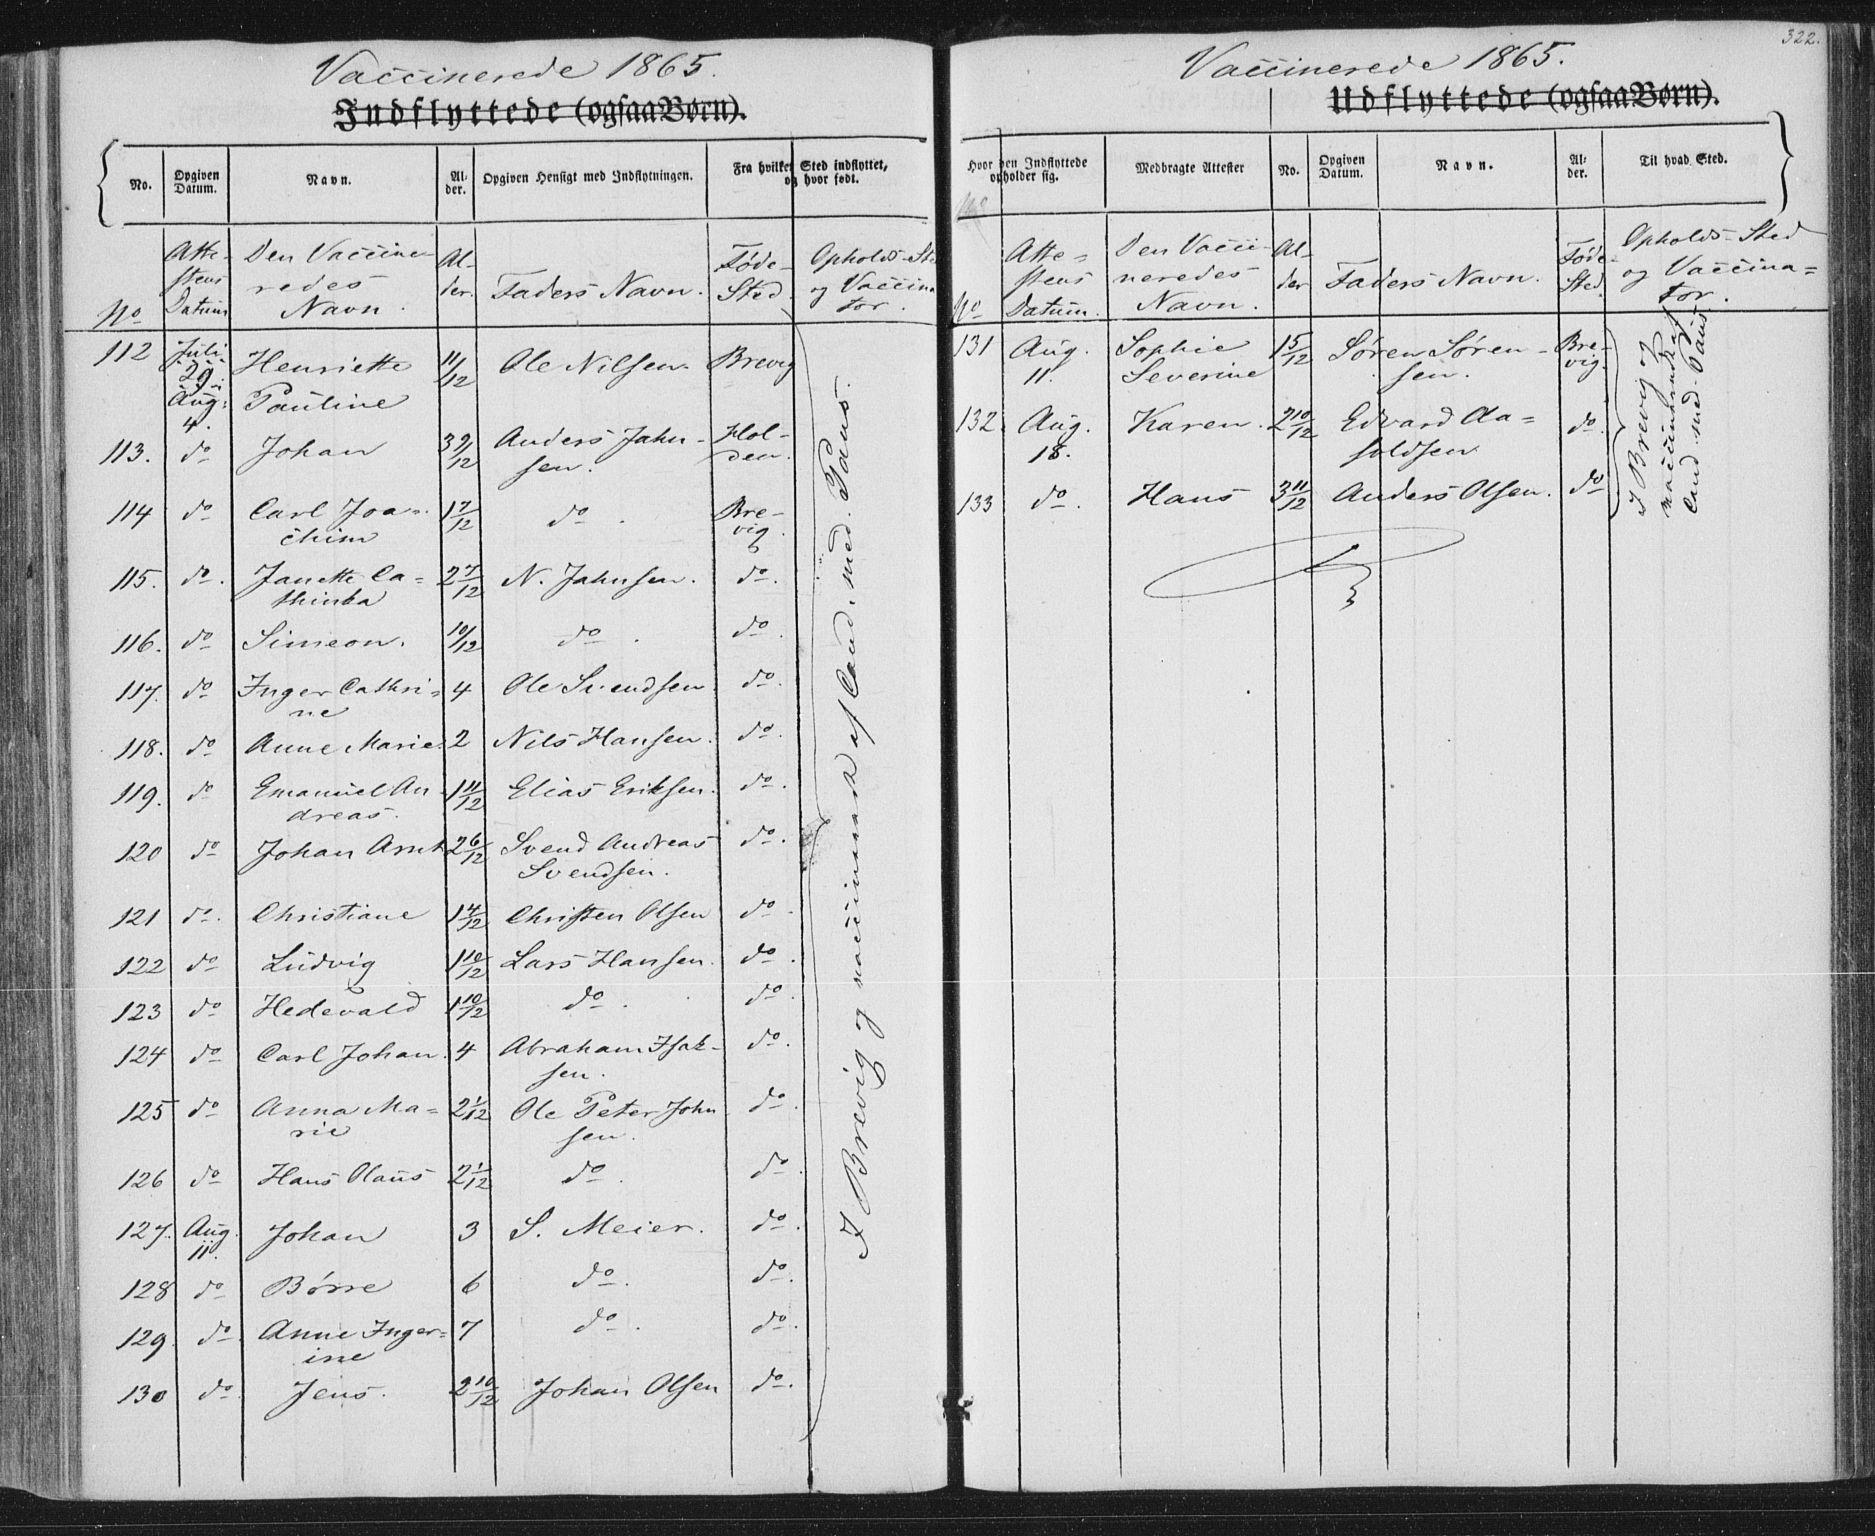 Vaccinerede 1865.
Indflyttede (ogsaa Børn).
No.
Opgiven Datum.
Navn.
Al-
der.
Opgiven Hensigt med Indflytningen.
Fra hvilket Sted indflyttet,
og hvor født.
No
Atte-
stens
Datum
Den Vaccine-
redes
Navn.
Al-
der.
Faders Navn.
Føde-
Sted.
Opholds-Sted
og Vaccina
tor.
112 Juli 29. Aug: 4. Henriette Pauline 11/12 Ole Nilsen. Brevig
113. do Johan 3 9/12 Anders Jahn-
sen. Hol-
den.
114 do Carl Joa-
chim 1 7/12 do. Bre-
vig.
115. do. Janette Ca=
thinka 2 7/12 N. Jahnsen. do.
116. do Simeon. 10/12 do. do.
117. do Inger Cathri-
ne 4 Ole Svendsen. do.
118. do Anne Marie. 2 Nils Hansen. do.
119. do Emanuel An-
dreas. 1 11/12 Elias Eriksen. do.
120 do Johan Arnt 2 6/12 Svend Andreas
Svendsen. do.
121 do. Christiane 1 4/12 Christen Olsen do.
122 do Ludvig 1 10/12 Lars Hansen. do.
123 do Hedevald 1 10/12 do. do.
124 do Carl Johan. 4 Abraham Isak-
sen. do.
125 do Anna Ma=
rie 2 1/12 Ole Peter John
sen. do.
126 do Hans Olaus 2 1/12 do. do.
127. Aug. 11. Johan 3 S. Meier. do.
128 do Børre 6 do. do.
129. do Anne Inger=
ine 7 do. do.
130 do. Jens. 2 10/12 Johan Olsen do.
I Brevig og vaccinerede af Cand. med. Paus.
322.
Vaccinerede 1865.
Udflyttede (ogsaa Børn).
Hvor den Indflyttede
opholder sig.
Medbragte Attester
No.
Opgiven
Datum.
Navn.
Al-
der.
Til hvad Sted.
No
Atte=
stens
Datum.
Den Vacci-
neredes
Navn.
Al-
der
Faders Navn.
Føde-
Sted.
Opholds-Sted
og Vaccina=
tor.
131 Aug. 11. Sophie
Severine 15/12 Søren Søren-
sen. Bre-
vig.
132. Aug. 18. Karen. 2 10/12 Edvard Aa=
soldsen do.
133 do. Hans 3 11/12 Anders Olsen. do
I Brevig og
vaccinerede af
Cand. med. Paus.